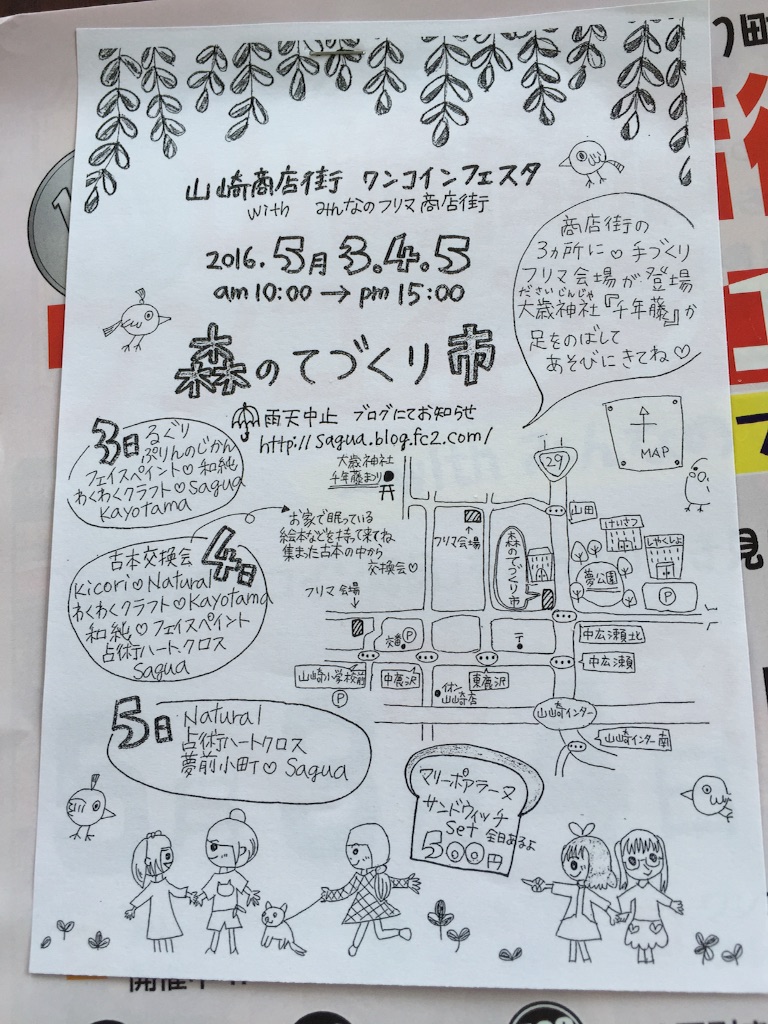 山崎商店街 ワンコインフェスタ
with みんなのフリマ商店街
2016.5月3.4.5
am10:00→pm15:00
森のてづくり市
雨天中止 ブログにてお知らせ
http://sagua.blog.fc2.com/
商店街の
3ヵ所に♡手づくり
フリマ会場が登場
ださいじんじゃ
大歳神社『千年藤』か
足をのばして
あそびにきてね♡
3日
るぐり
ぷりんのじかん
フェイスペイント♡和純
わくわくクラフト♡Sagua
Kayotama
4日
古本交換会
Kicori♡Natural
わくわくクラフト♡Kayotama
和純♡フェイスペイント
占術ハートクロス
Sagua
お家で眠っている
絵本などを持って来てね
集まった古本の中から
交換会♡
5日
Natural
占術ハートクロス
夢前小町♡Sagua
MAP
29
大歳神社
千年藤まつり
フリマ会場
森のてづくり市
山田
けいさつ
しやくしょ
夢公園
P
フリマ会場
交番
P
〒
中広瀬北
中広瀬
山崎小学校前
P
中鹿沢
東鹿沢
イオン
山崎店
山崎インター
山崎インター南
マリーポアラーヌ
サンドウィッチ
Set 全日あるよ
500円
見
開催中!!